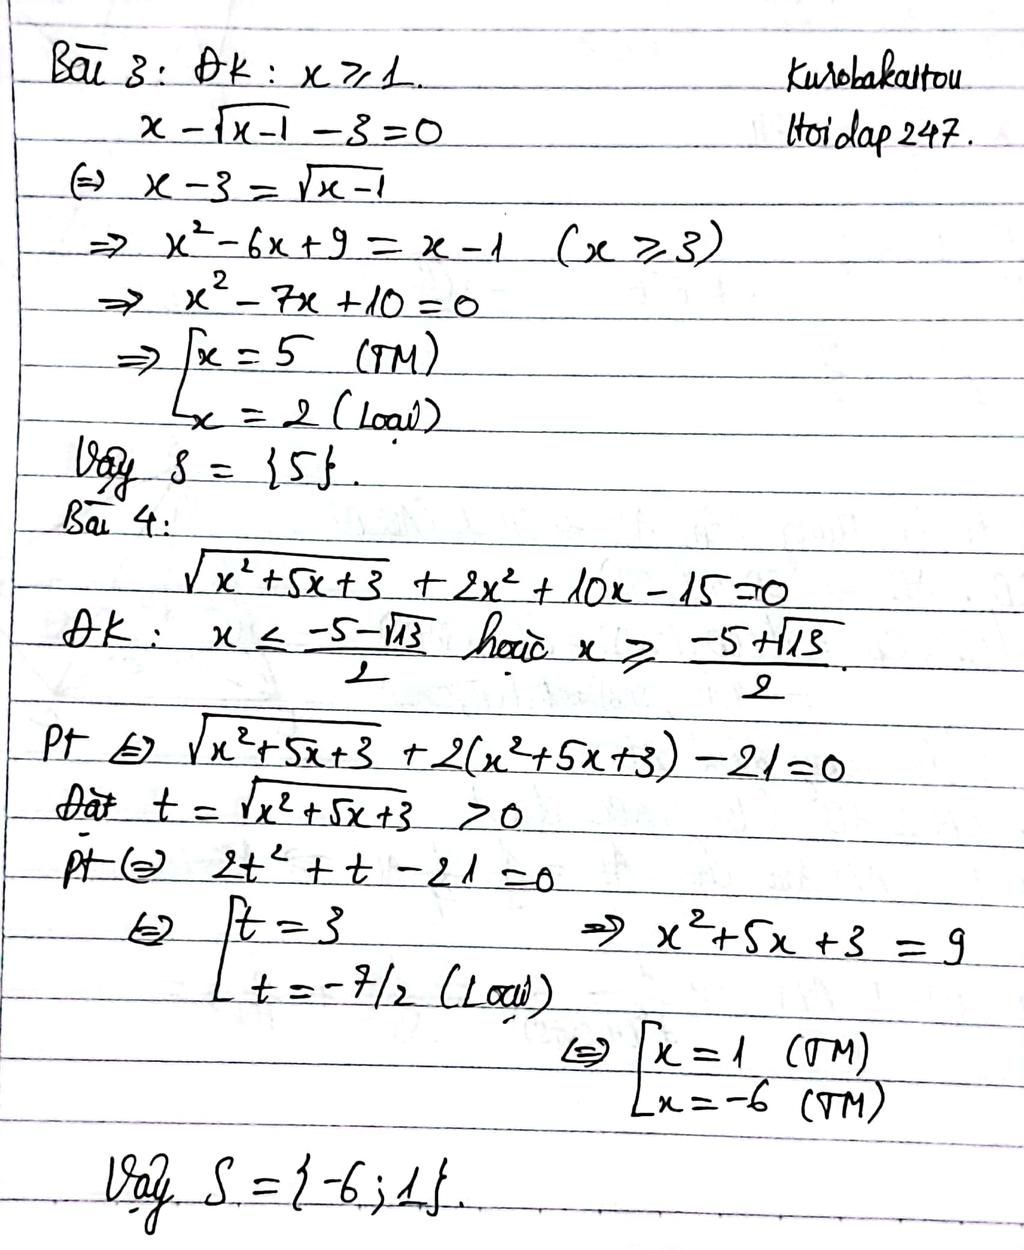 Bài 3: ĐK: x ≥ 1.
Kurobakaitou
Hoidap247.
x - √(x-1) - 3 = 0
⇔ x - 3 = √(x-1)
⇒ x² - 6x + 9 = x - 1 (x ≥ 3)
⇒ x² - 7x + 10 = 0
⇒ [ x = 5 (TM)
x = 2 (Loại)
Vậy S = {5}.
Bài 4:
√(x² + 5x + 3) + 2x² + 10x - 15 = 0
ĐK: x ≤ (-5-√13)/2 hoặc x ≥ (-5+√13)/2.
Pt ⇔ √(x² + 5x + 3) + 2(x² + 5x + 3) - 21 = 0
Đặt t = √(x² + 5x + 3) > 0
pt ⇔ 2t² + t - 21 = 0
⇔ [ t = 3 ⇒ x² + 5x + 3 = 9
t = -7/2 (Loại)
⇔ [ x = 1 (TM)
x = -6 (TM)
Vậy S = {-6; 1}.